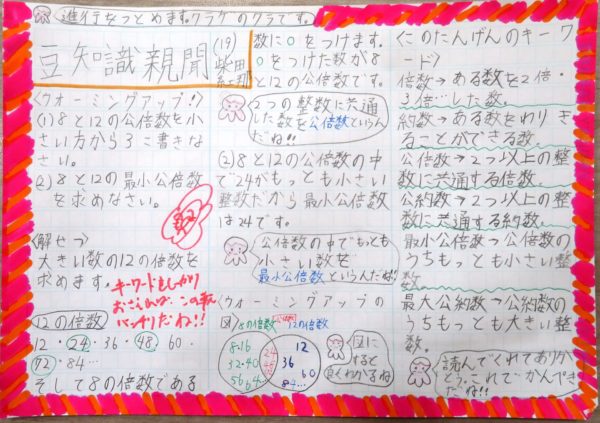 進行をつとめます。クラゲのクラです。
豆知識新聞
(19)
柴田
<ウォーミングアップ!>
(1)8と12の公倍数を小
さい方から3こ書きな
さい。
(2)8と12の最小公倍数
を求めなさい。
<解せつ>
大きい数の12の倍数を
求めます。
キーワードをしっかり
おさえれば、この単元
バッチリだね!!
12の倍数
12・24・36・48・60・
72・84…
そして8の倍数である
数に○をつけます。
○をつけた数が8
と12の公倍数です。
2つの整数に共通
した数を公倍数というん
だね!!
(2)8と12の公倍数の中
で24がもっとも小さい
整数だから最小公倍数
は24です。
公倍数の中でもっとも
小さい数を
最小公倍数というんだね!
<ウォーミングアップの
図>
8の倍数
12の倍数
8・16
32・40
56 64
24
48
72
12
36
60
84…
図に
すると
良くわかるね
<このたんげんのキーワ
ード>
倍数→ある数を2倍・
3倍…した数。
約数→ある数をわりき
ることができる数。
公倍数→2つ以上の整
数に共通する倍数。
公約数→2つ以上の整
数に共通する約数。
最小公倍数→公倍数の
うちもっとも小さい整
数。
最大公約数→公約数の
うちもっとも大きい整
数。
読んでくれてありが
とう。これで、かんぺき
だね!!